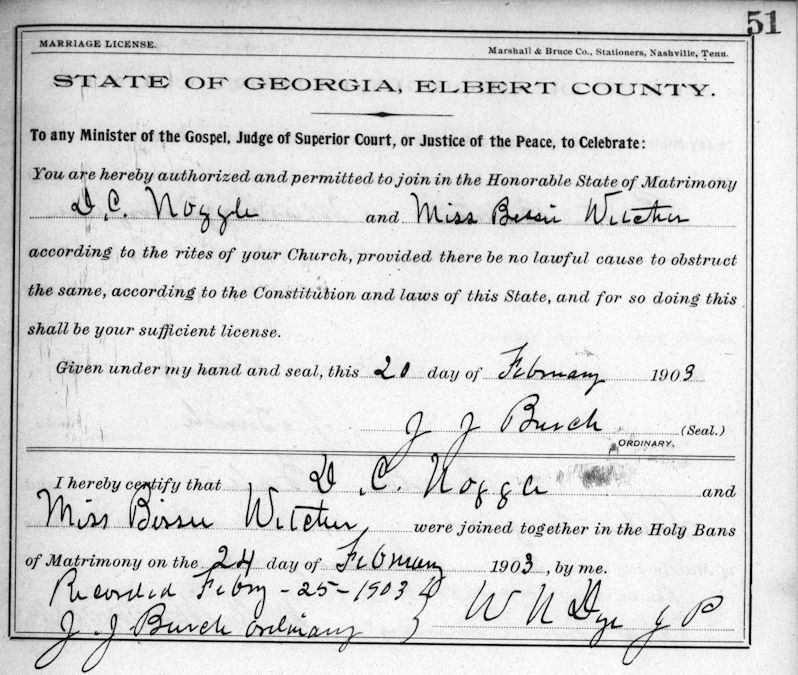 51
MARRIAGE LICENSE. Marshall & Bruce Co., Stationers, Nashville, Tenn.
STATE OF GEORGIA, ELBERT COUNTY.
To any Minister of the Gospel, Judge of Superior Court, or Justice of the Peace, to Celebrate:
You are hereby authorized and permitted to join in the Honorable State of Matrimony
D. C. Noggle and Miss Bessie Witcher
according to the rites of your Church, provided there be no lawful cause to obstruct
the same, according to the Constitution and laws of this State, and for so doing this
shall be your sufficient license.
Given under my hand and seal, this 20 day of February 1903
J J Burch (Seal.)
ORDINARY.
I hereby certify that D. C. Noggle and
Miss Bessie Witcher were joined together in the Holy Bans
of Matrimony on the 24 day of February 1903, by me.
Recorded Febry - 25 - 1903
J. J. Burch ordinary W N Dye J P